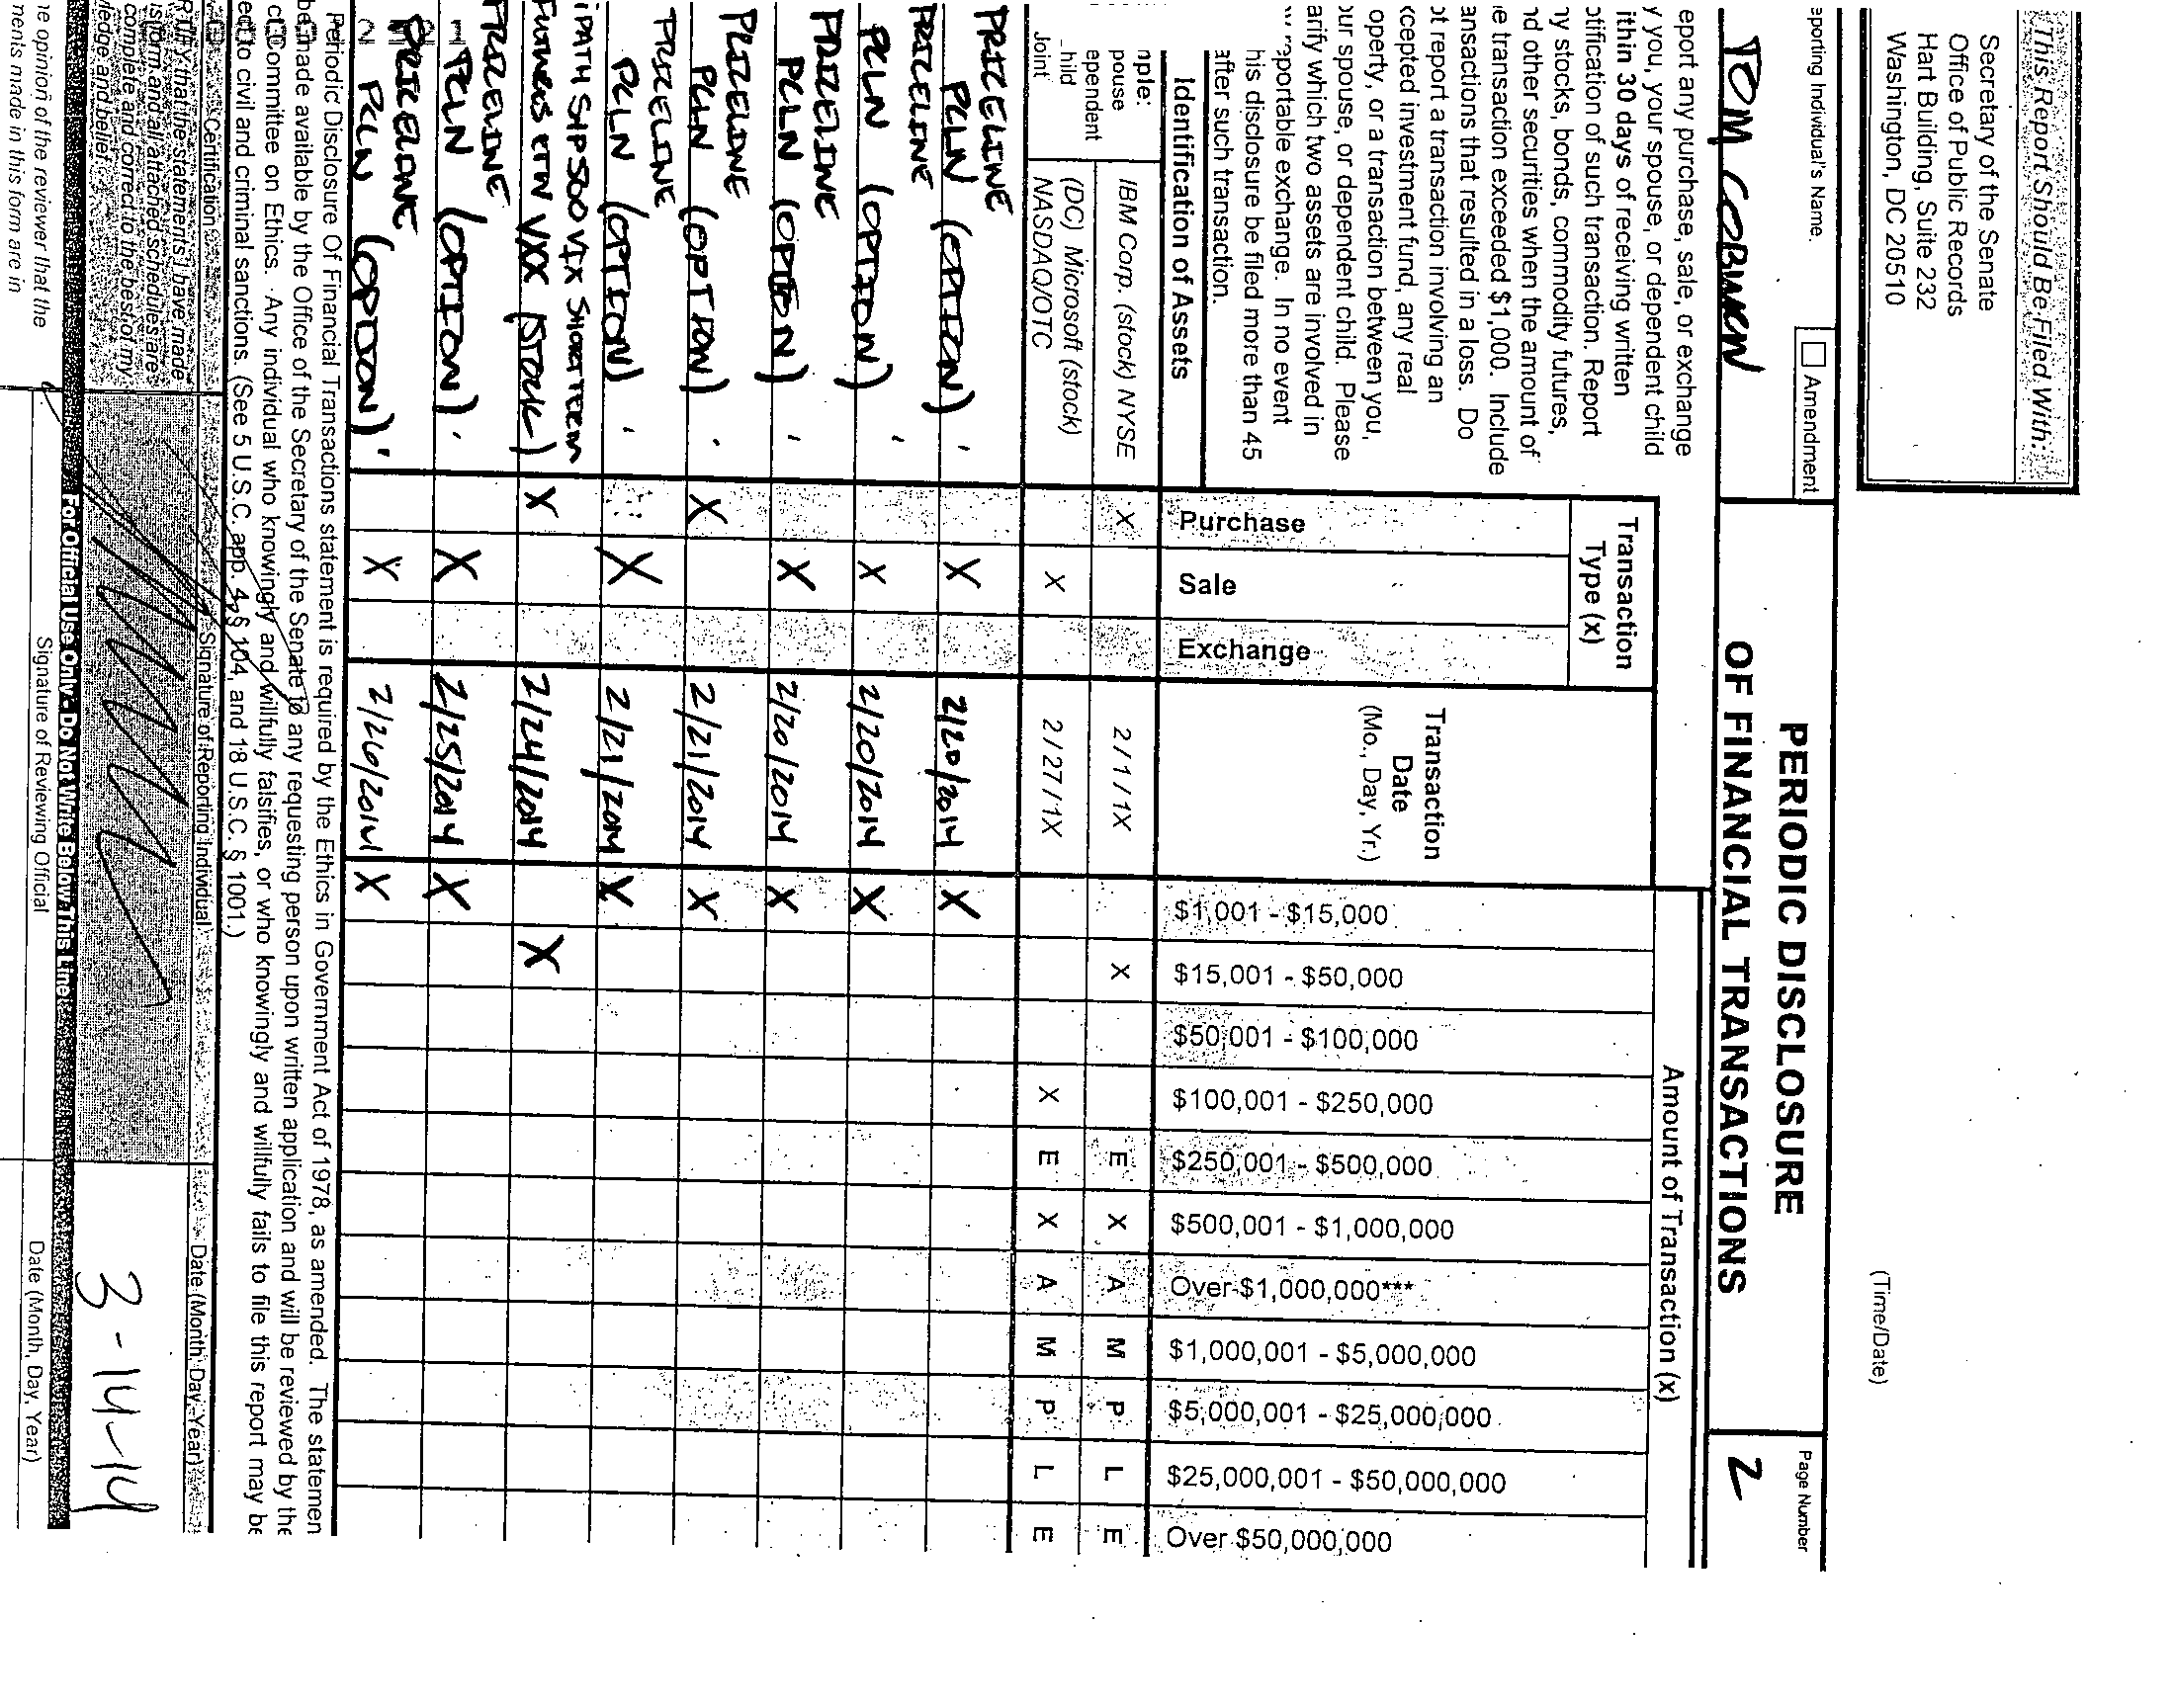 This Report Should Be Filed With:
Secretary of the Senate
Office of Public Records
Hart Building, Suite 232
Washington, DC 20510
(Time/Date)
eporting Individual's Name.
Amendment
TOM COBURN
PERIODIC DISCLOSURE
OF FINANCIAL TRANSACTIONS
Page Number
2
eport any purchase, sale, or exchange
y you, your spouse, or dependent child
ithin 30 days of receiving written
otification of such transaction. Report
ny stocks, bonds, commodity futures,
nd other securities when the amount of
e transaction exceeded $1,000. Include
ansactions that resulted in a loss. Do
ot report a transaction involving an
xcepted investment fund, any real
operty, or a transaction between you,
our spouse, or dependent child. Please
arify which two assets are involved in
reportable exchange. In no event
his disclosure be filed more than 45
after such transaction.
Identification of Assets
Transaction Type (x)
Purchase
Sale
Exchange
Transaction Date (Mo., Day, Yr.)
Amount of Transaction (x)
$1,001 - $15,000
$15,001 - $50,000
$50,001 - $100,000
$100,001 - $250,000
$250,001 - $500,000
$500,001 - $1,000,000
Over $1,000,000***
$1,000,001 - $5,000,000
$5,000,001 - $25,000,000
$25,000,001 - $50,000,000
Over $50,000,000
nple:
pouse
ependent
hild
Joint
IBM Corp. (stock) NYSE X 2/1/1X X E X A M P L E
(DC) Microsoft (stock) NASDAQ/OTC X 2/27/1X X E X A M P L E
PRICELINE
PCLN (OPTION) X 2/20/2014 X
PRICELINE
PCLN (OPTION) X 2/20/2014 X
PRICELINE
PCLN (OPTION) X 2/20/2014 X
PRICELINE
PCLN (OPTION) X 2/21/2014 X
PRICELINE
PCLN (OPTION) X 2/21/2014 X
iPATH S&P 500 VIX SHORT TERM
FUTURES ETN VXX (STOCK) X 2/24/2014 X
PRICELINE
PCLN (OPTION) X 2/25/2014 X
PRICELINE
PCLN (OPTION) X 2/26/2014 X
Periodic Disclosure Of Financial Transactions statement is required by the Ethics in Government Act of 1978, as amended. The statemen
be made available by the Office of the Secretary of the Senate to any requesting person upon written application and will be reviewed by the
ct Committee on Ethics. Any individual who knowingly and willfully falsifies, or who knowingly and willfully fails to file this report may be
ect to civil and criminal sanctions. (See 5 U.S.C. app. 4, § 104, and 18 U.S.C. § 1001.)
Certification
Signature of Reporting Individual
Date (Month, Day, Year)
RTIFY that the statements I have made
is form and all attached schedules are
complete and correct to the best of my
ledge and belief.
3-14-14
For Official Use Only - Do Not Write Below This Line
he opinion of the reviewer that the
ments made in this form are in
Signature of Reviewing Official
Date (Month, Day, Year)